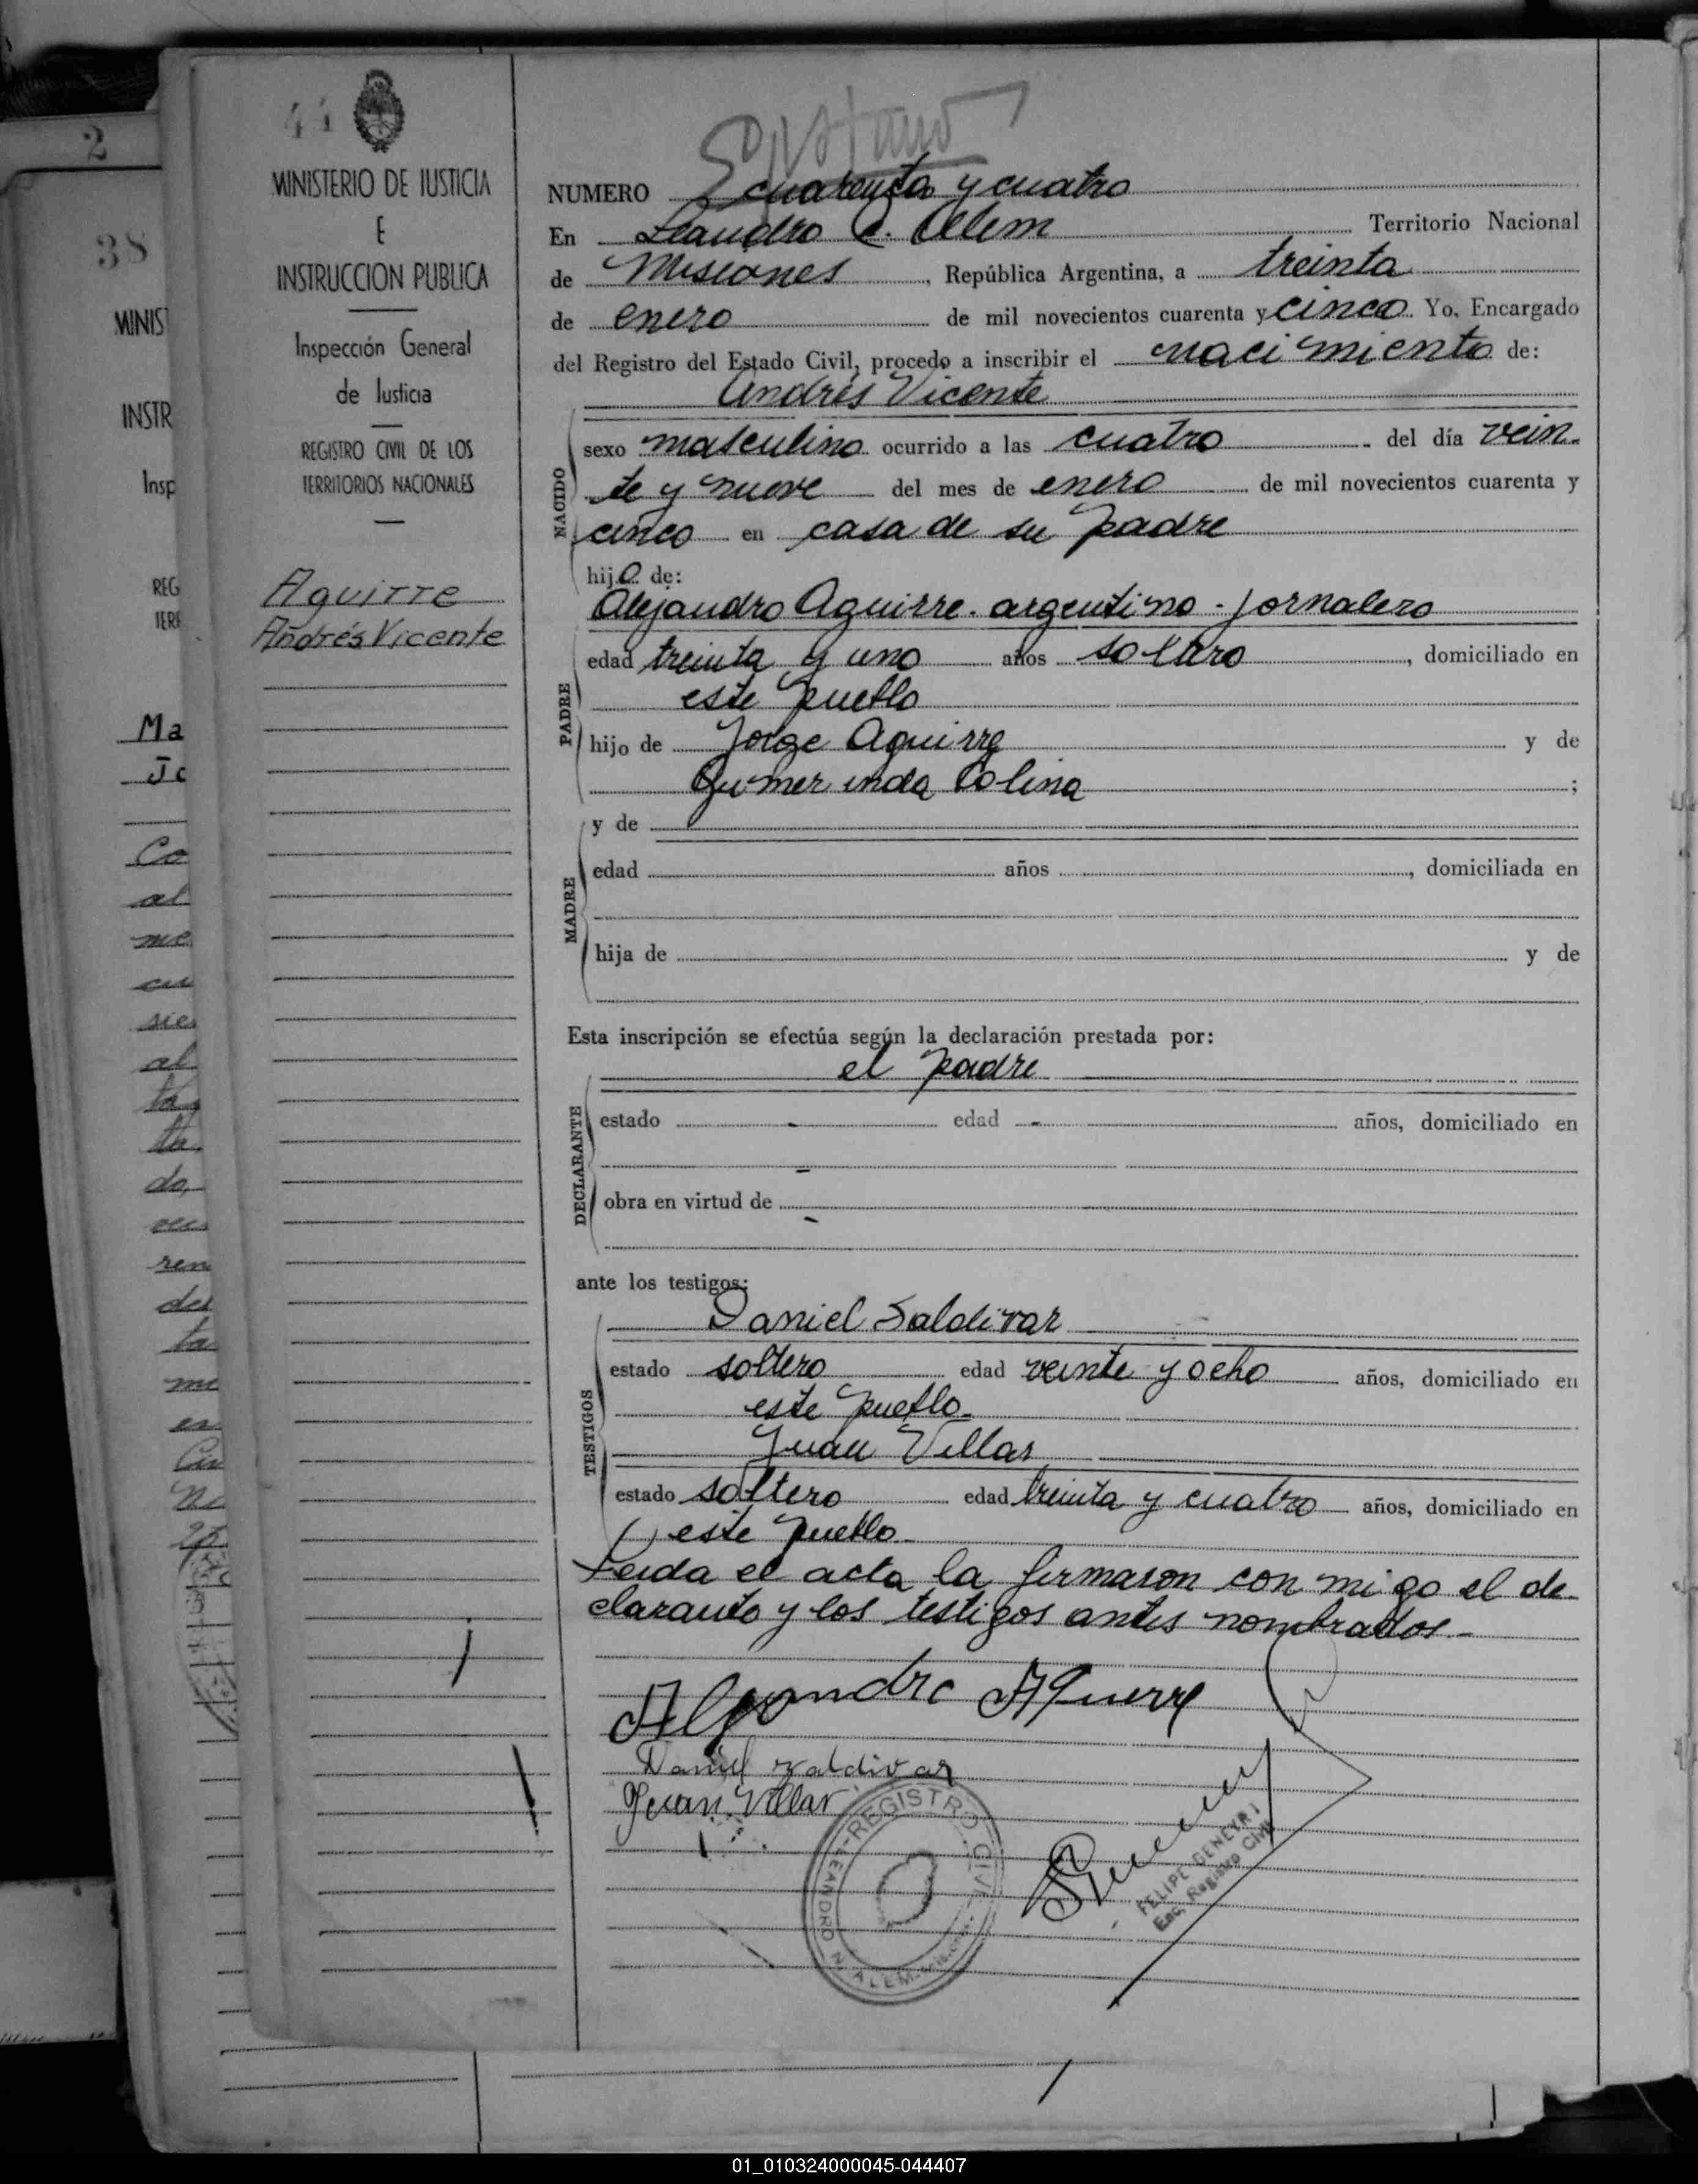 2
38
MINIS
INSTR
Insp
REG
TERR
Ma
Jo
Co
al
me
cu
sie
al
ta
do,
ren
del
ta
me
en
44
MINISTERIO DE JUSTICIA
E
INSTRUCCION PUBLICA
Inspección General
de Justicia
REGISTRO CIVIL DE LOS
TERRITORIOS NACIONALES
Aguirre
Andrés Vicente
NUMERO cuarenta y cuatro
En Leandro C. Alem Territorio Nacional
de Misiones, República Argentina, a treinta
de enero de mil novecientos cuarenta y cinco. Yo, Encargado
del Registro del Estado Civil, procedo a inscribir el nacimiento de:
Andrés Vicente
NACIDO
sexo masculino ocurrido a las cuatro del día vein-
te y nueve del mes de enero de mil novecientos cuarenta y
cinco en casa de su padre
hijo de:
PADRE
Alejandro Aguirre - argentino - jornalero
edad treinta y uno años soltero, domiciliado en
este pueblo
hijo de Jorge Aguirre y de
Gumerinda Colina;
MADRE
y de
edad años, domiciliada en
hija de y de
Esta inscripción se efectúa según la declaración prestada por:
DECLARANTE
el padre
estado - edad - años, domiciliado en
-
obra en virtud de -
ante los testigos:
TESTIGOS
Daniel Saldivar
estado soltero edad veinte y ocho años, domiciliado en
este pueblo-
Juan Villar
estado soltero edad treinta y cuatro años, domiciliado en
este pueblo-
Leida el acta la firmaron con migo el de-
claranto y los testigos antes nombrados.-
Alejandro Aguerre
Daniel Zaldivar
Juan Villar
REGISTRO CIVIL
LEANDRO N. ALEM
FELIPE GENEYRI
Enc. Registro Civil
01_010324000045-044407